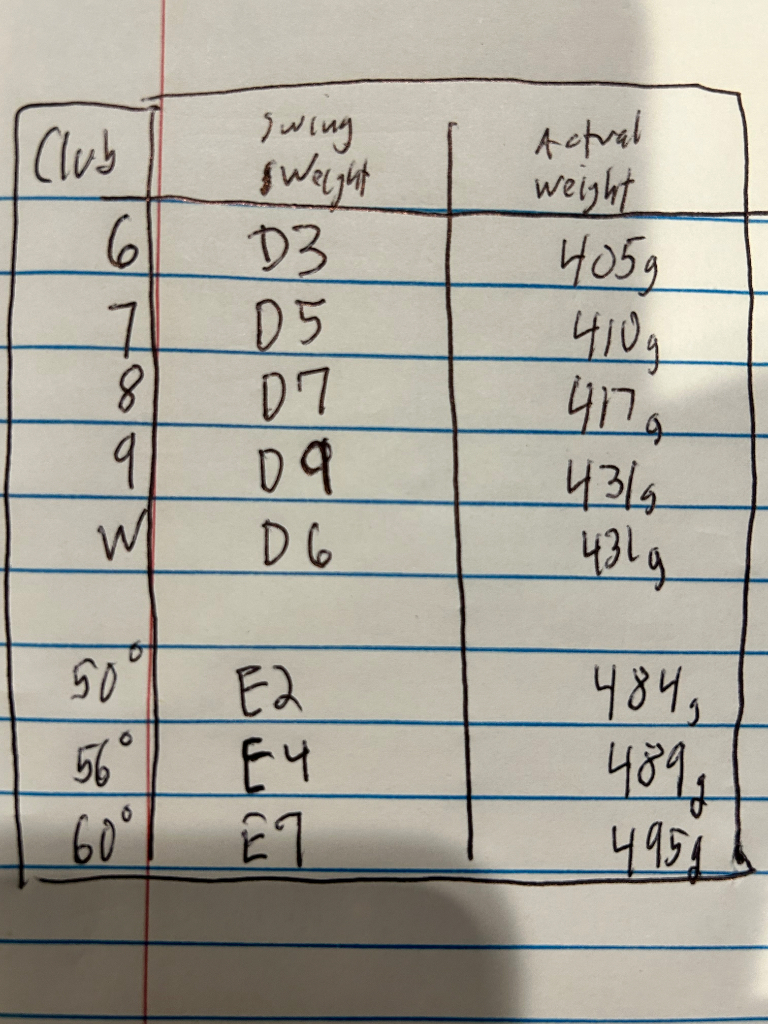 Club Swing Weight Actual Weight
6 D3 405g
7 D5 410g
8 D7 417g
9 D9 431g
W D6 431g
50° E2 484g
56° E4 489g
60° E7 495g